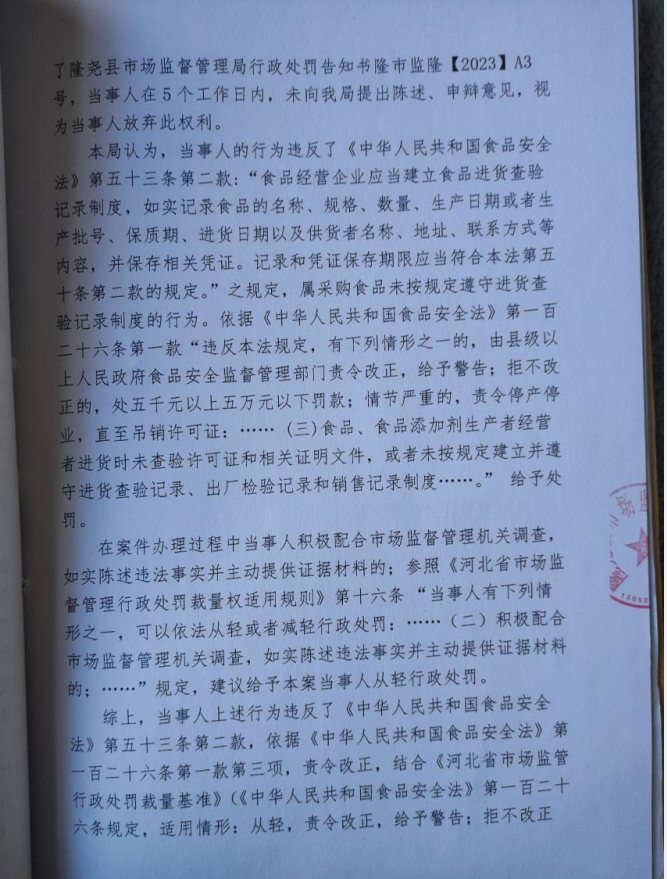 了隆尧县市场监督管理局行政处罚告知书隆市监隆【2023】A3
号，当事人在5个工作日内，未向我局提出陈述、申辩意见，视
为当事人放弃此权利。
本局认为，当事人的行为违反了《中华人民共和国食品安全
法》第五十三条第二款：“食品经营企业应当建立食品进货查验
记录制度，如实记录食品的名称、规格、数量、生产日期或者生
产批号、保质期、进货日期以及供货者名称、地址、联系方式等
内容，并保存相关凭证。记录和凭证保存期限应当符合本法第五
十条第二款的规定。”之规定，属采购食品未按规定遵守进货查
验记录制度的行为。依据《中华人民共和国食品安全法》第一百
二十六条第一款“违反本法规定，有下列情形之一的，由县级以
上人民政府食品安全监督管理部门责令改正，给予警告；拒不改
正的，处五千元以上五万元以下罚款；情节严重的，责令停产停
业，直至吊销许可证：……（三）食品、食品添加剂生产者经营
者进货时未查验许可证和相关证明文件，或者未按规定建立并遵
守进货查验记录、出厂检验记录和销售记录制度……。” 给予处
罚。
在案件办理过程中当事人积极配合市场监督管理机关调查，
如实陈述违法事实并主动提供证据材料的；参照《河北省市场监
督管理行政处罚裁量权适用规则》第十六条 “当事人有下列情
形之一，可以依法从轻或者减轻行政处罚：……（二）积极配合
市场监督管理机关调查，如实陈述违法事实并主动提供证据材料
的；……”规定，建议给予本案当事人从轻行政处罚。
综上，当事人上述行为违反了《中华人民共和国食品安全
法》第五十三条第二款，依据《中华人民共和国食品安全法》第
一百二十六条第一款第三项，责令改正，结合《河北省市场监管
行政处罚裁量基准》（《中华人民共和国食品安全法》第一百二十
六条规定，适用情形：从轻，责令改正，给予警告；拒不改正